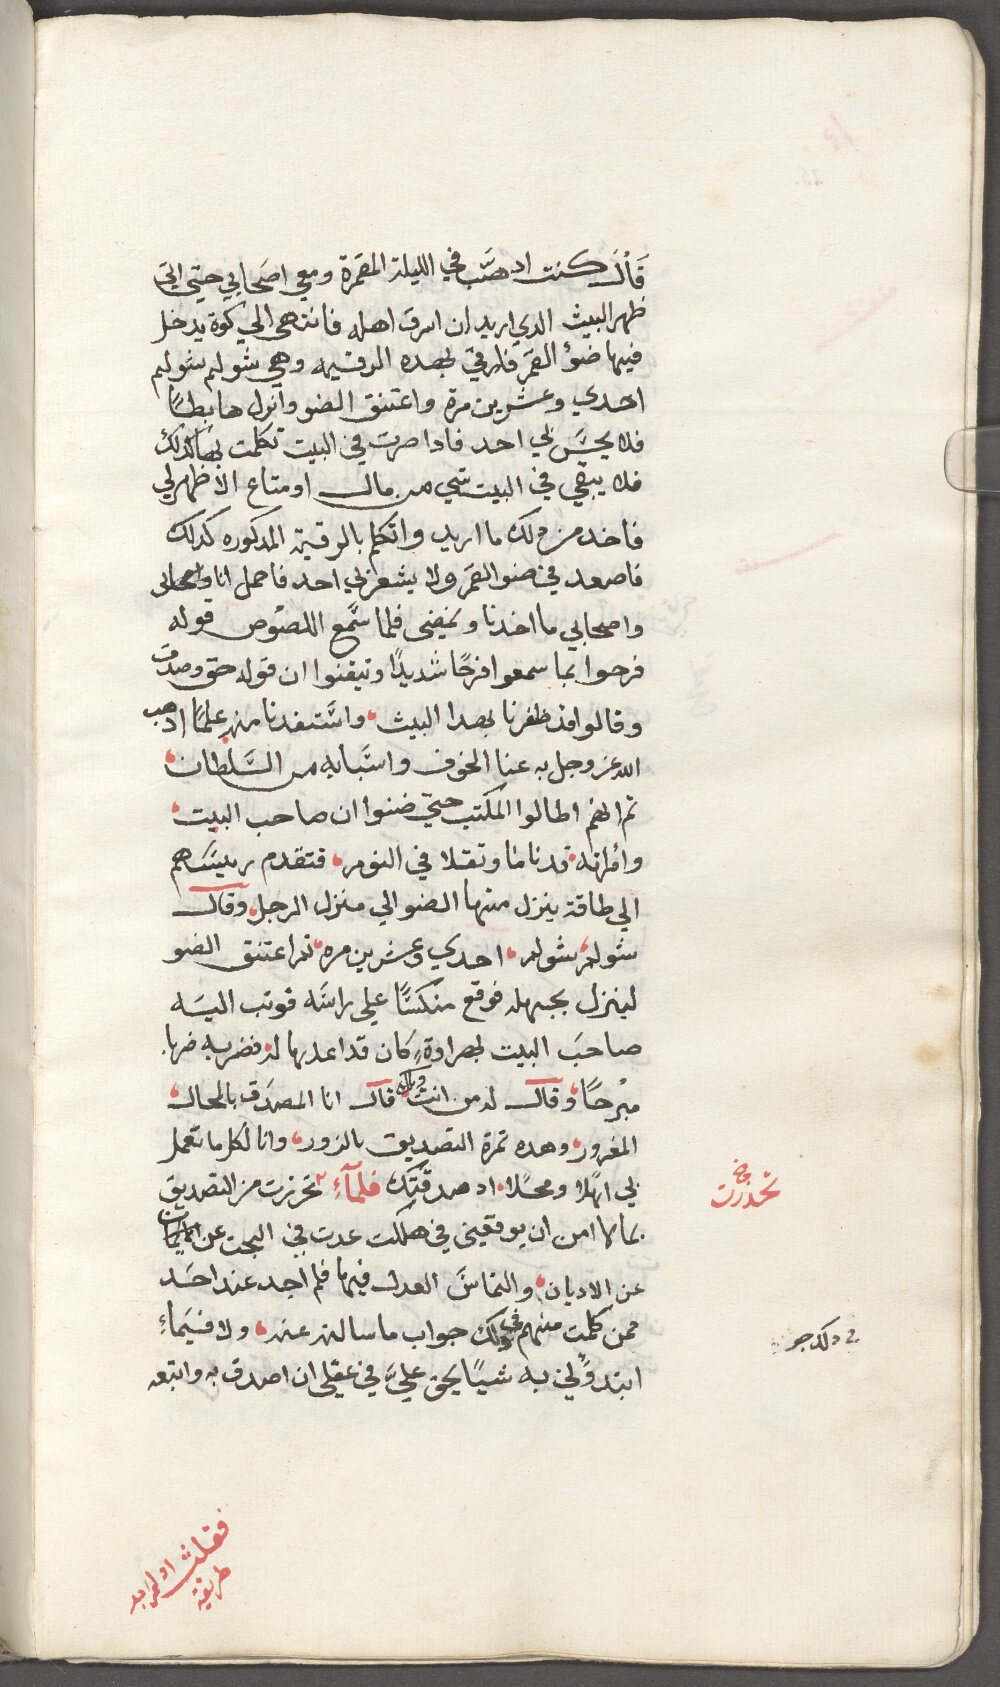 قَالَ كنت ادهَّب في الليلة المقمرة ومعي اصَحابي حتي اتي
ظهر البيت الدي اريد ان اسرق اهله فانتهي الي كوة يدخل
فيها ضوُ القمَر فارقي بهده الرقيه وهي شولم شولم
احدي وعشرين مرة واعتنق الضو وانزل هابطًا
فلا يحسَّ بي احد فادا صرت في البيت تكلمت بها كدلك
فلا يبقي في البيت شي من مال او متاع الا ظهر لي
فاخد من دلك ما اريد واتكلم بالرقية المدكوره كدلك
فاصعد في ضو القمَر ولا يشعر بي احد فاحمل انا واصحابي
واصحابي ما اخدنا ونمضي فلما سَّمع اللصُوص قوله
فرحوا بما سمعوا فرحًا شديدًا وتيقنوا ان قوله حق وصدق
وقالوا قد ظفرنا بهدا البيت واسَّتفدنا منه علمًا ادهب
الله عز وجل به عنا الخوف واسَبابه من السَّلطان
ثم انهم اطالوا المكتب حتي ضنوا ان صاحب البيت
وامراته قد ناما وتقلا في النوم فتقدم رييسَهم
الي طاقة ينزل منها الضو الي منزل الرجل وقال
شولم شولم احدي وعشرين مره ثم اعتنق الضو
لينزل بجهله فوقع منكسًّا علي راسَه فوتب اليَه
صاحبَ البيت بهراوةٍ كان قد اعدها له فضربه ضربا
مبْرحًا وقال له من انت وماله قال انا المصدَق بالمحال
المغرور وهده تمرة التصديق بالزور وانا لكلما تعمل
بي اهلا ومحَلا اد صدقتك فلمآءِ تحرزت من التصديق
بما لا امن ان يوقعيني في هلكت عدت في البحت عن الديانات
عن الاديان والتماسَّ العدل فيها فلم اجد عند احَد
ممن كلمت منهم في دلك جواب ما سالته عنه ولا فيمَاءِ
ابتدوُني به شيًا يحق عليَّ في عقلي ان اصدق به واتبعه
تحدرت
في دلك جو
فقلت